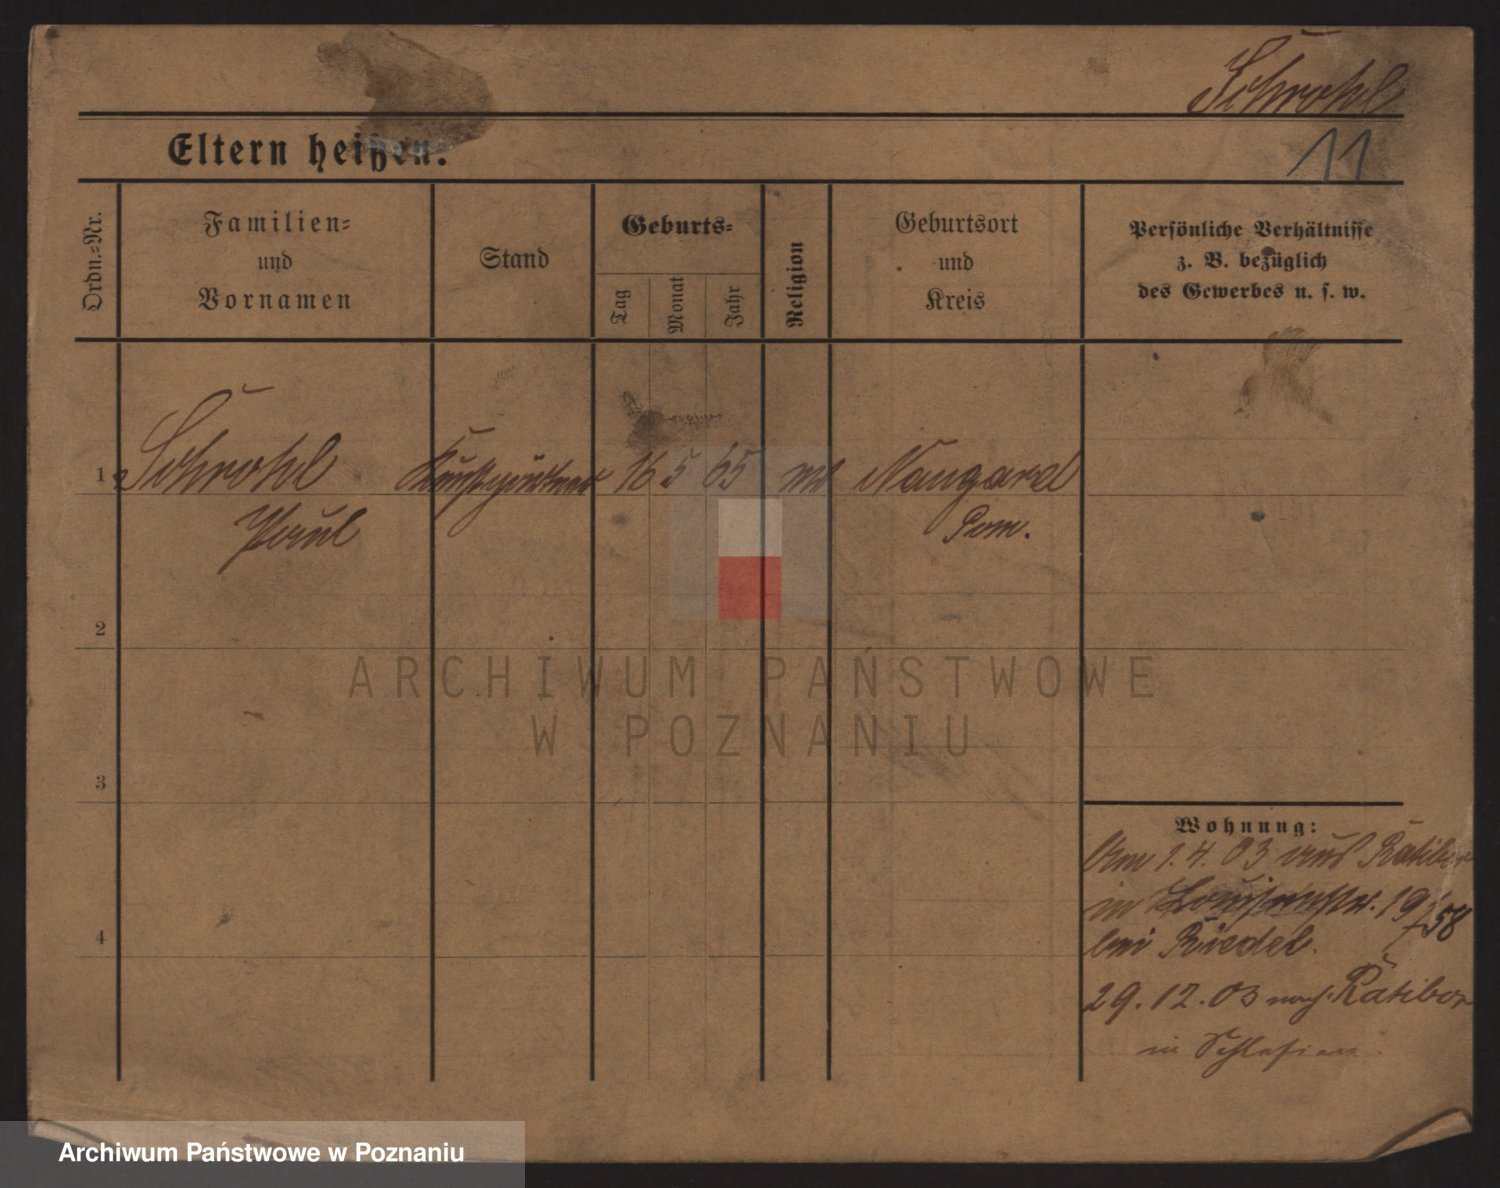 Schrohl
11
Eltern heißen:
Ordn.=Nr.
Familien=
und
Vornamen
Stand
Geburts=
Tag
Monat
Jahr
Religion
Geburtsort
und
Kreis
Persönliche Verhältnisse
z. B. bezüglich
des Gewerbes u. s. w.
1 Schrohl Kunstgärtner 16 5 65 Naugard
Paul Pom.
2
3
4
ARCHIWUM PAŃSTWOWE
W POZNANIU
Wohnung:
1.4.03 aus Ratibor
in Louisenstr. 19/58
bei Riedel.
29.12.03 nach Ratibor
in Schlesien.
Archiwum Państwowe w Poznaniu